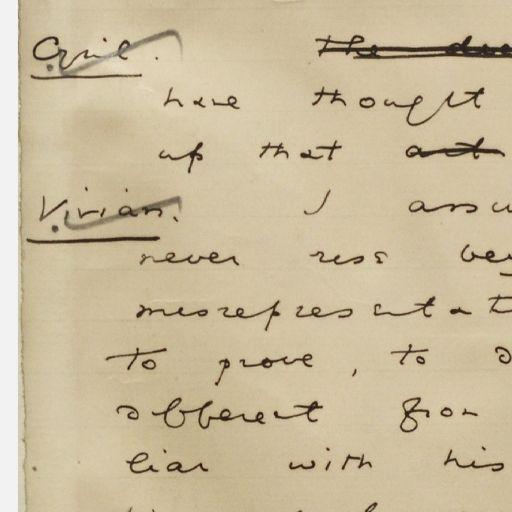 Cyril. The
have thought
up that act
Vivian. I assu
never rise bey
misrepresentat
to prove, to d
different from
liar with his